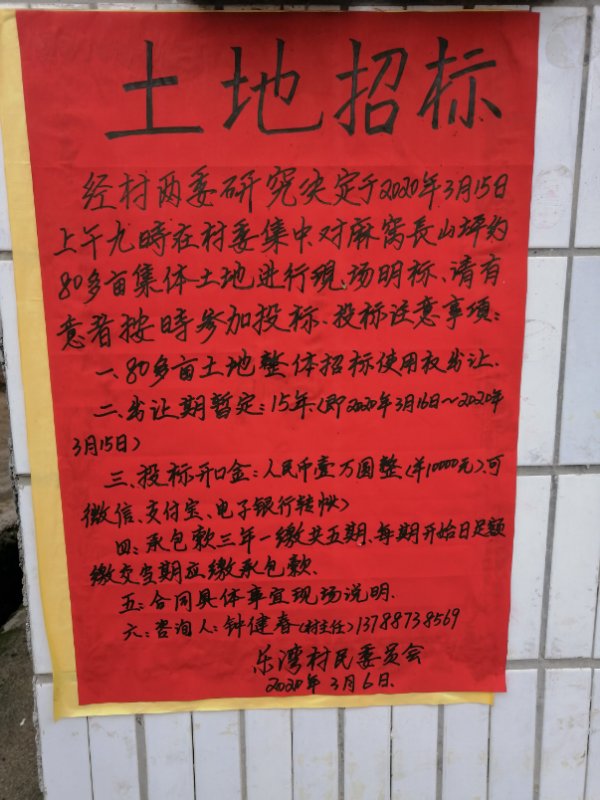 土地招标
经村两委研究决定于2020年3月15日
上午九時在村委集中对麻窝長山坪约
80多亩集体土地进行現场明标、请有
意者按時参加投标、投标注意事項：
一、80多亩土地整体招标使用权出让.
二、出让期暂定：15年（即2020年3月16日～2020年
3月15日）
三、投标开口金：人民币壹万园整（￥10000元）、可
微信、支付宝、电子银行转帐）
四：承包款三年一缴共五期、每期开始日足额
缴交当期应缴承包款.
五：合同具体事宜现场说明.
六：咨询人：钟健春（村主任）13788738569
乐湾村民委员会
2020年3月6日.